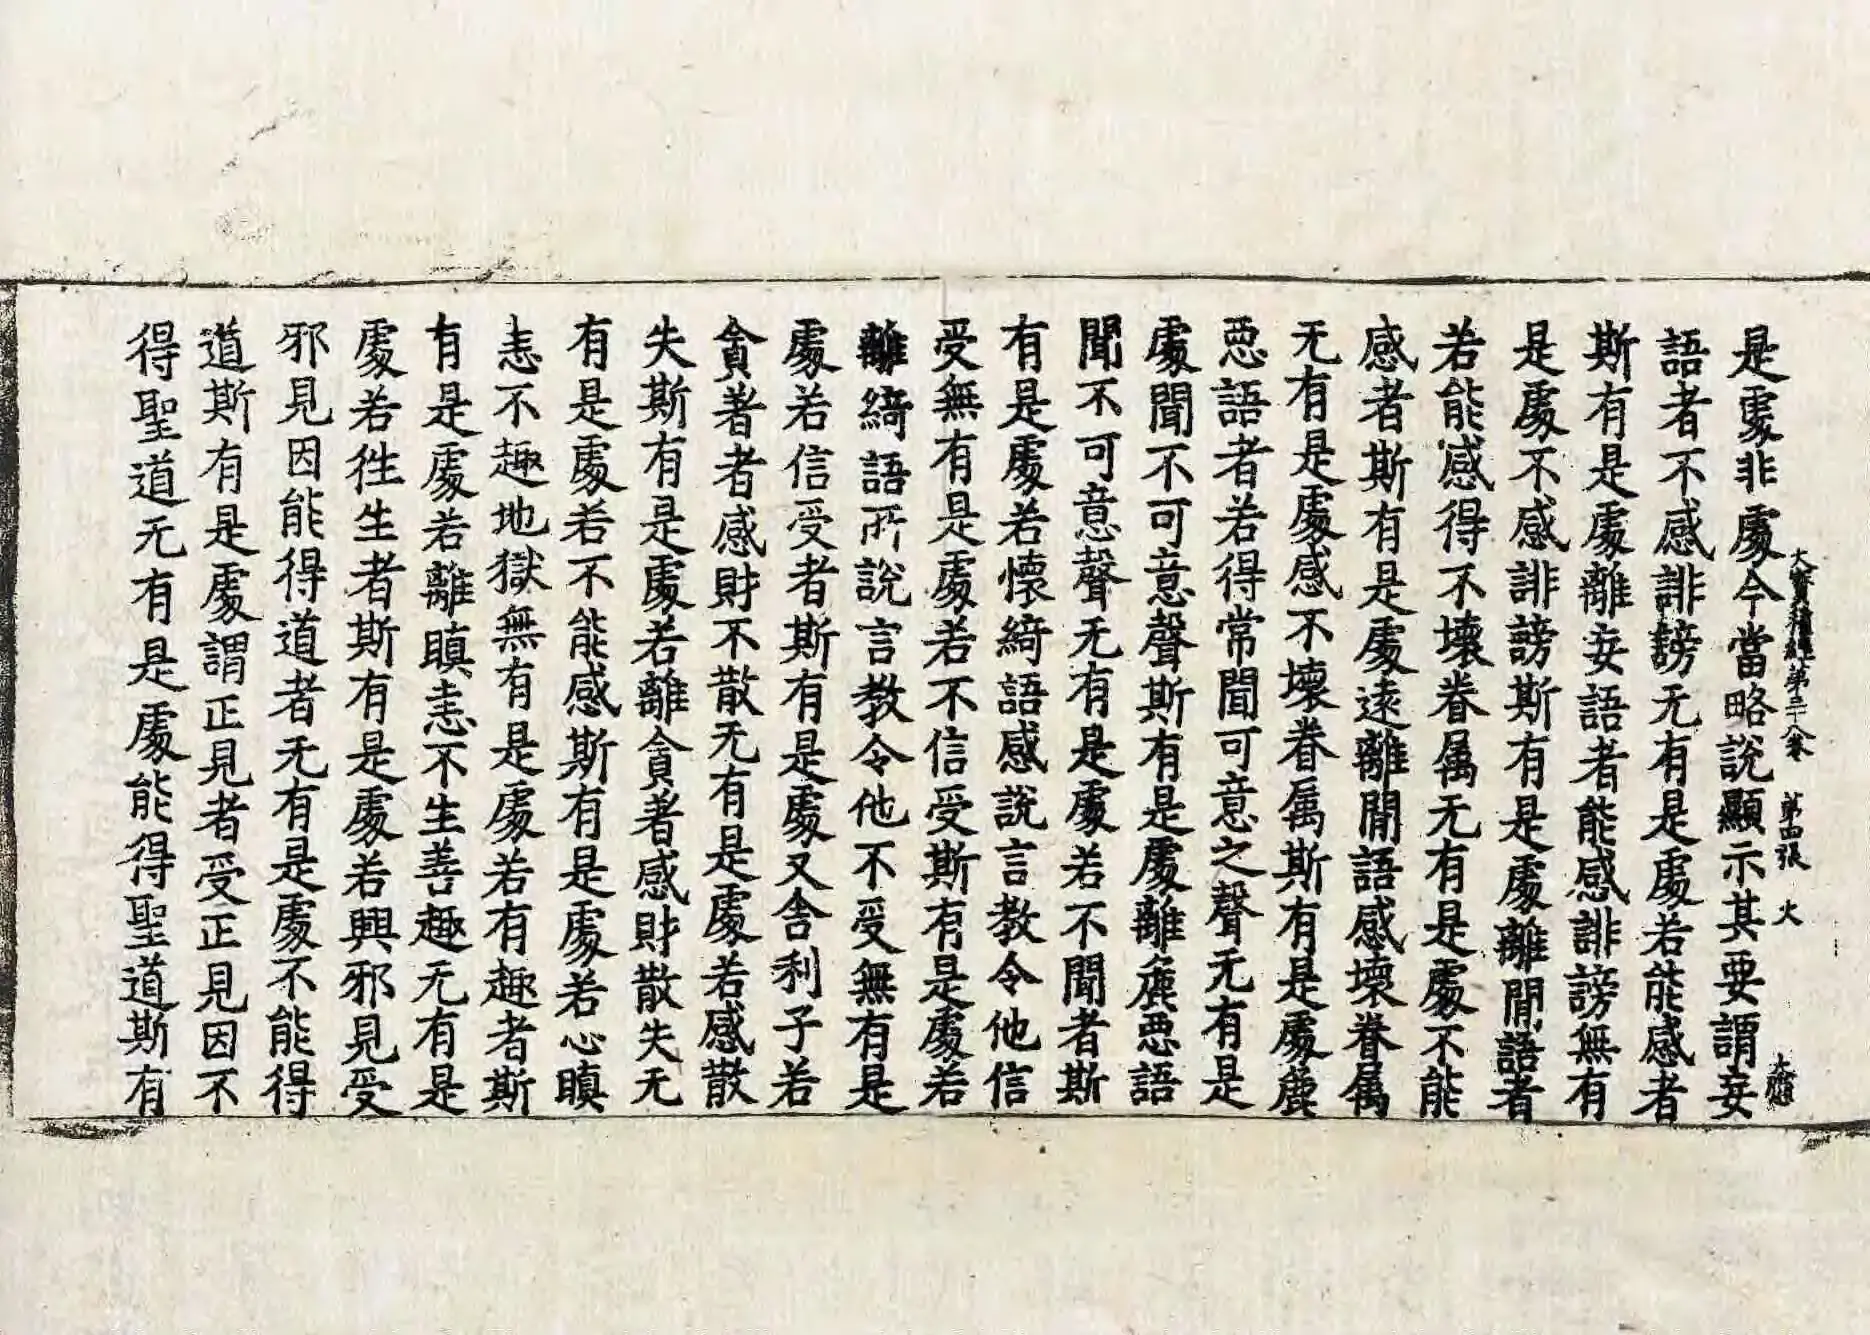 大寶積經第三十八卷 第四張 火
是處非處今當略說顯示其要謂妄
語者不感誹謗无有是處若能感者
斯有是處離妄語者能感誹謗無有
是處不感誹謗斯有是處離間語者
若能感得不壞眷属无有是處不能
感者斯有是處遠離間語感壞眷属
无有是處感不壞眷属斯有是處麁
悪語者若得常聞可意之聲无有是
處聞不可意聲斯有是處離麁悪語
聞不可意聲无有是處若不聞者斯
有是處若懷綺語感說言教令他信
受無有是處若不信受斯有是處若
離綺語所說言教令他不受無有是
處若信受者斯有是處又舍利子若
貪著者感財不散无有是處若感散
失斯有是處若離貪著感財散失无
有是處若不能感斯有是處若心瞋
恚不趣地獄無有是處若有趣者斯
有是處若離瞋恚不生善趣无有是
處若往生者斯有是處若興邪見受
邪見因能得道者无有是處不能得
道斯有是處謂正見者受正見因不
得聖道无有是處能得聖道斯有